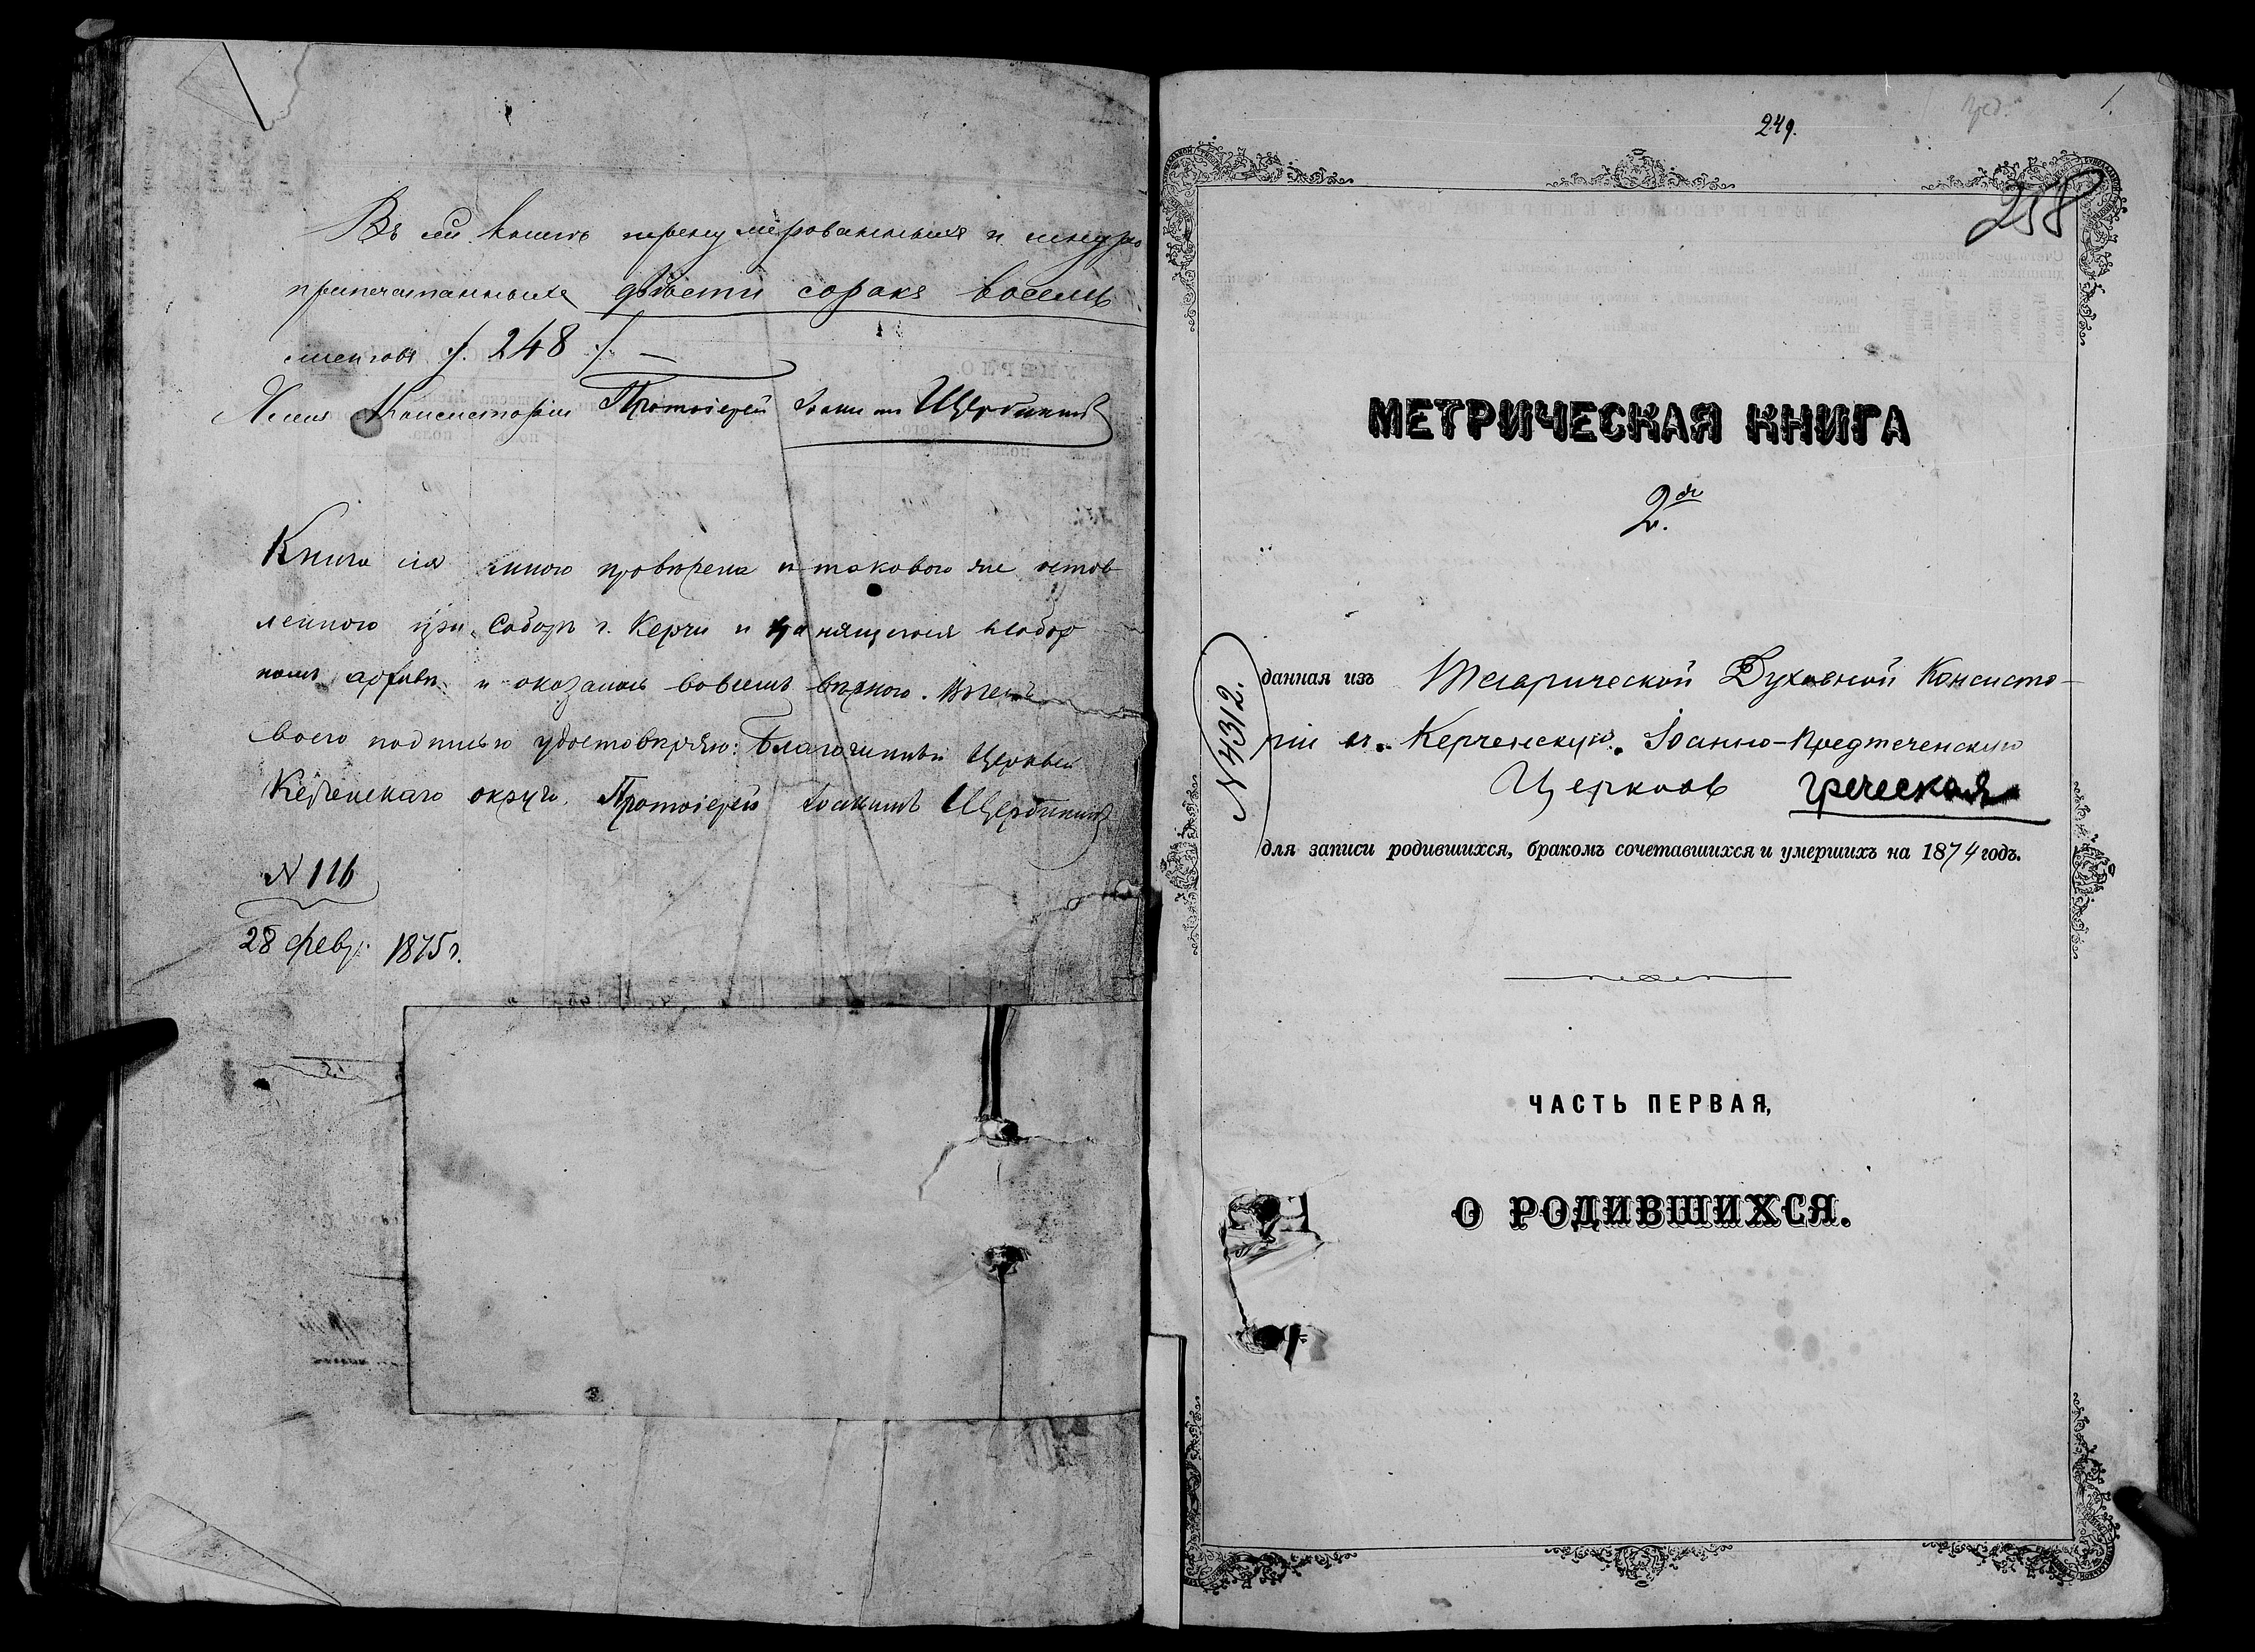 Въ сей книгѣ перенумерованныхъ и шнуро
припечатанныхъ двѣсти сорокъ восемь
листовъ ./. 248 ./. —
Членъ Консисторіи Протоіерей Іоакимъ Щербининъ
Книга сія мною провѣрена и таковою же остав
ленною при Соборѣ г. Керчи и хранящеюся въ собор
номъ архивѣ и оказалась во всемъ вѣрною. Въ чемъ
своею подписью удостовѣряю: Благочинный Церквей
Керченскаго округа, Протоіерей Іоакимъ Щербининъ
N 116
28 февр. 1875 г.
1.
249.
258
МЕТРИЧЕСКАЯ КНИГА
2я.
N 4312.
данная изъ Таврической Духовной Консисто-
ріи въ Керченскую Іоанно-Предтеченскую
Церковь греческая
для записи родившихся, бракомъ сочетавшихся и умершихъ на 1874 годъ.
ЧАСТЬ ПЕРВАЯ,
О РОДИВШИХСЯ.